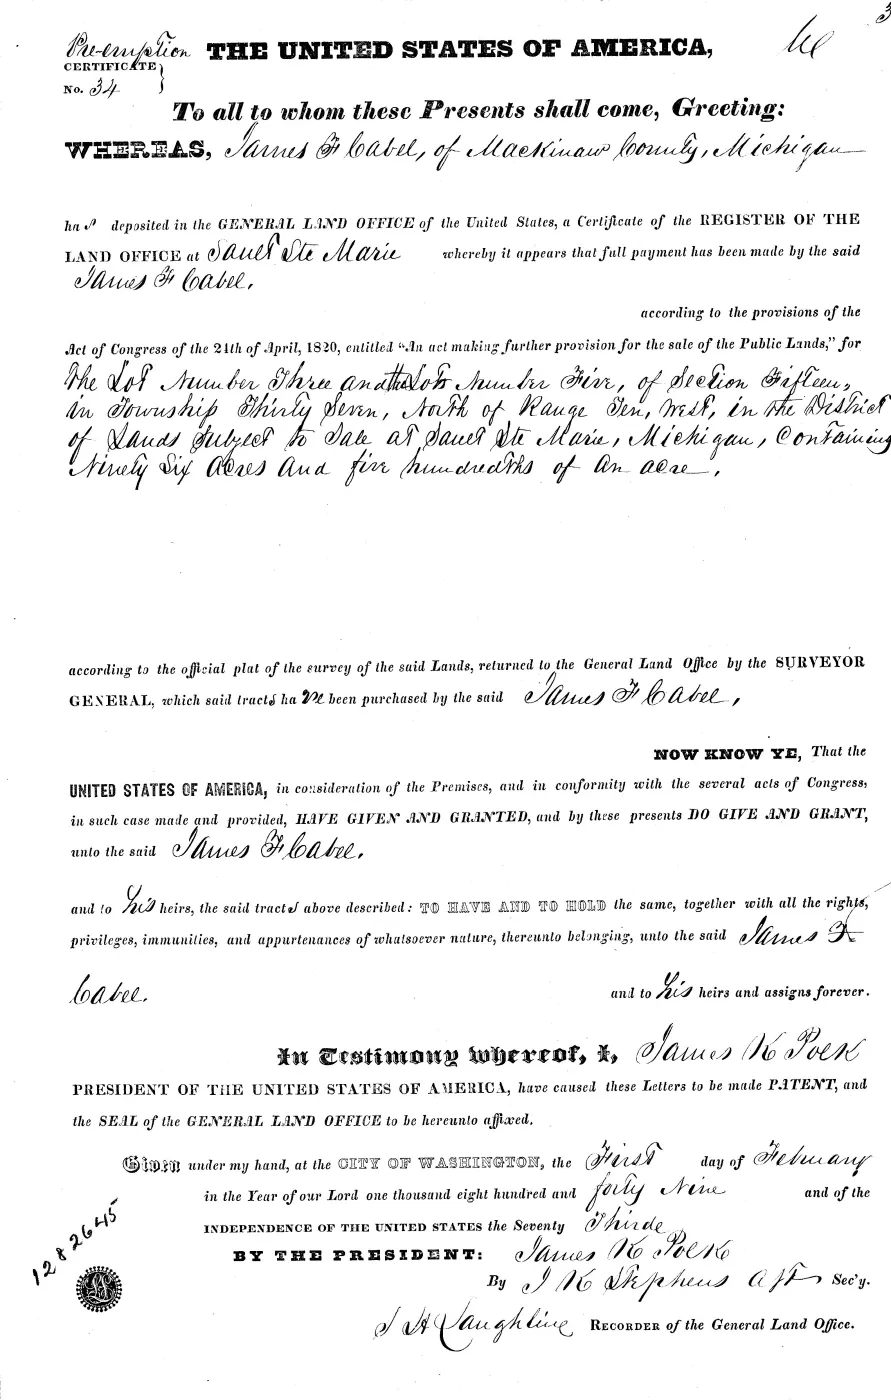 3
Pre-emption
CERTIFICATE
No. 34
THE UNITED STATES OF AMERICA,
To all to whom these Presents shall come, Greeting:
WHEREAS, James F Cabel, of Mackinaw County, Michigan
ha s deposited in the GENERAL LAND OFFICE of the United States, a Certificate of the REGISTER OF THE
LAND OFFICE at Sault Ste Marie whereby it appears that full payment has been made by the said
James F Cabel.
according to the provisions of the
Act of Congress of the 24th of April, 1820, entitled “An act making further provision for the sale of the Public Lands,” for
the Lot Number Three and the Lot Number Five, of Section Fifteen,
in Township Thirty Seven, North of Range Ten, West, in the District
of Lands Subject to Sale at Sault Ste Marie, Michigan, Containing
Ninety Six Acres and five hundredths of an acre,
according to the official plat of the survey of the said Lands, returned to the General Land Office by the SURVEYOR
GENERAL, which said tracts ha ve been purchased by the said James F Cabel,
NOW KNOW YE, That the
UNITED STATES OF AMERICA, in consideration of the Premises, and in conformity with the several acts of Congress,
in such case made and provided, HAVE GIVEN AND GRANTED, and by these presents DO GIVE AND GRANT,
unto the said James F Cabel.
and to his heirs, the said tracts above described: TO HAVE AND TO HOLD the same, together with all the rights,
privileges, immunities, and appurtenances of whatsoever nature, thereunto belonging, unto the said James F
Cabel. and to his heirs and assigns forever.
In Testimony whereof, I, James K Polk
PRESIDENT OF THE UNITED STATES OF AMERICA, have caused these Letters to be made PATENT, and
the SEAL of the GENERAL LAND OFFICE to be hereunto affixed.
Given under my hand, at the CITY OF WASHINGTON, the First day of February
in the Year of our Lord one thousand eight hundred and forty Nine and of the
INDEPENDENCE OF THE UNITED STATES the Seventy Third
BY THE PRESIDENT: James K Polk
By J K Stephens Sec'y.
1282645
S H Laughline RECORDER of the General Land Office.